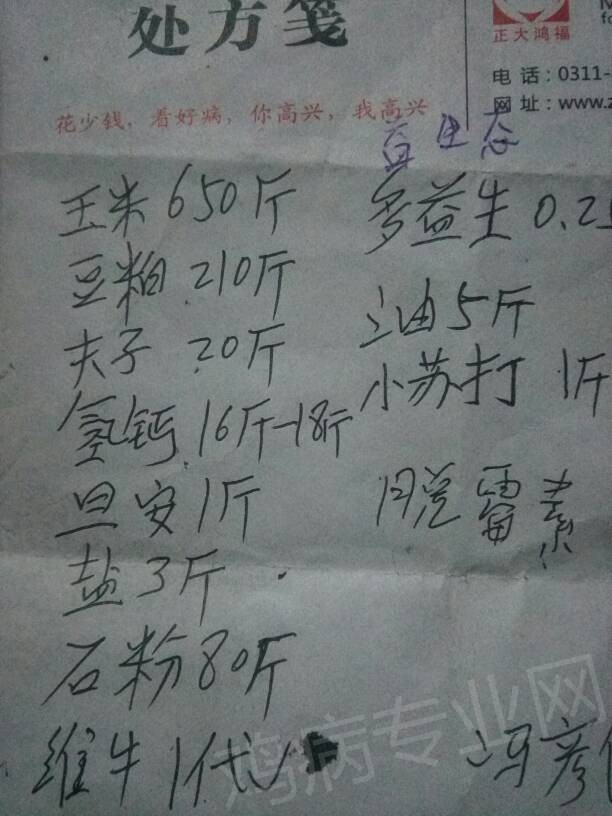 处方笺
正大鸿福
电话:0311-
网址:www.z
花少钱,看好病,你高兴,我高兴
益生态
玉米 650斤
豆粕 210斤
夫子 20斤
氢钙 16斤-18斤
旦安 1斤
盐 3斤
石粉 80斤
维牛 1代
多益生 0.25
油 5斤
小苏打 1斤
脱霉素
冯彦
鸡病专业网